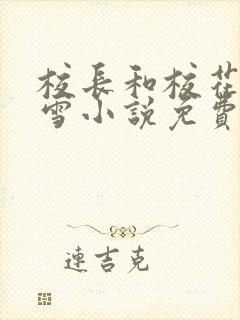 校長和校花
雪小說免費
連吉克